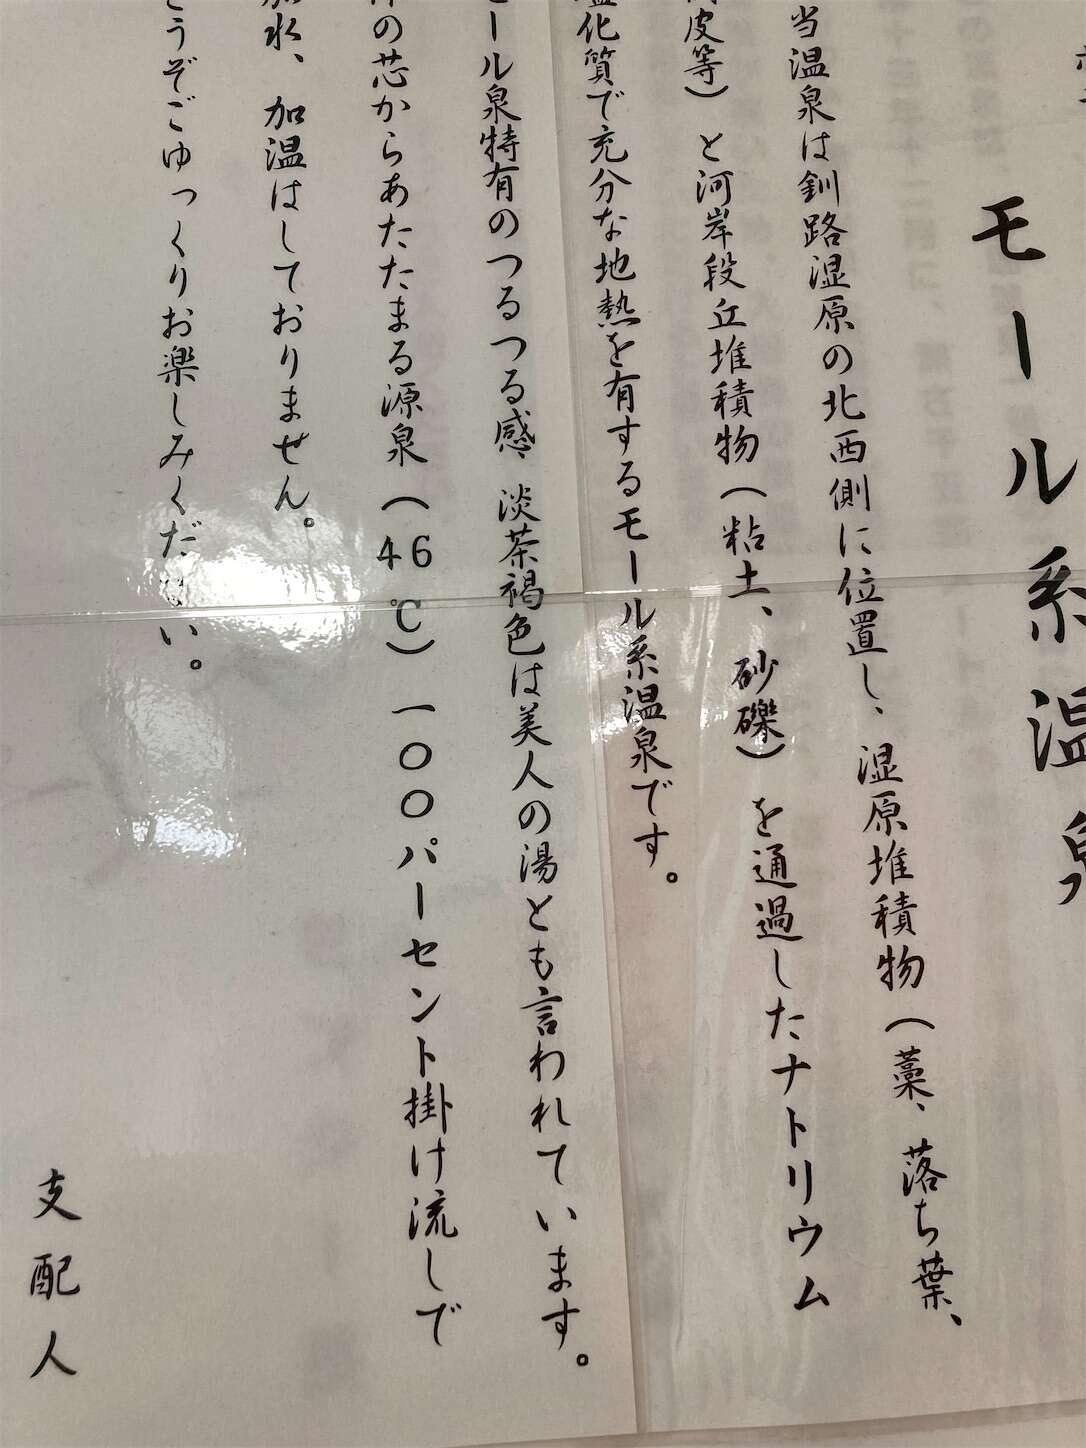 モール系温泉
当温泉は釧路湿原の北西側に位置し、湿原堆積物（藁、落ち葉、
皮等）と河岸段丘堆積物（粘土、砂礫）を通過したナトリウム
塩化質で充分な地熱を有するモール系温泉です。
モール泉特有のつるつる感、淡茶褐色は美人の湯とも言われています。
体の芯からあたたまる源泉（４６℃）一〇〇パーセント掛け流しで
加水、加温はしておりません。
どうぞごゆっくりお楽しみください。
支配人